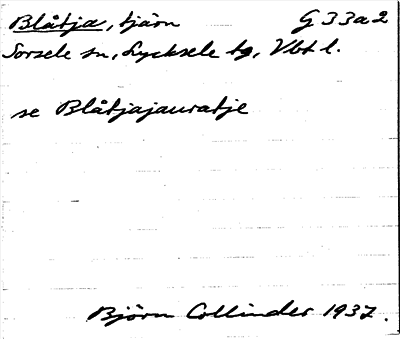 Blåtja, tjärn G 33 a 2
Sorsele sn, Lycksele tg, Vbt l.
se Blåtjajauratje
Björn Collinder 1937.